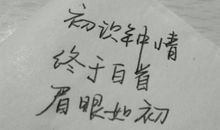 初识钟情
终于白首
眉眼如初